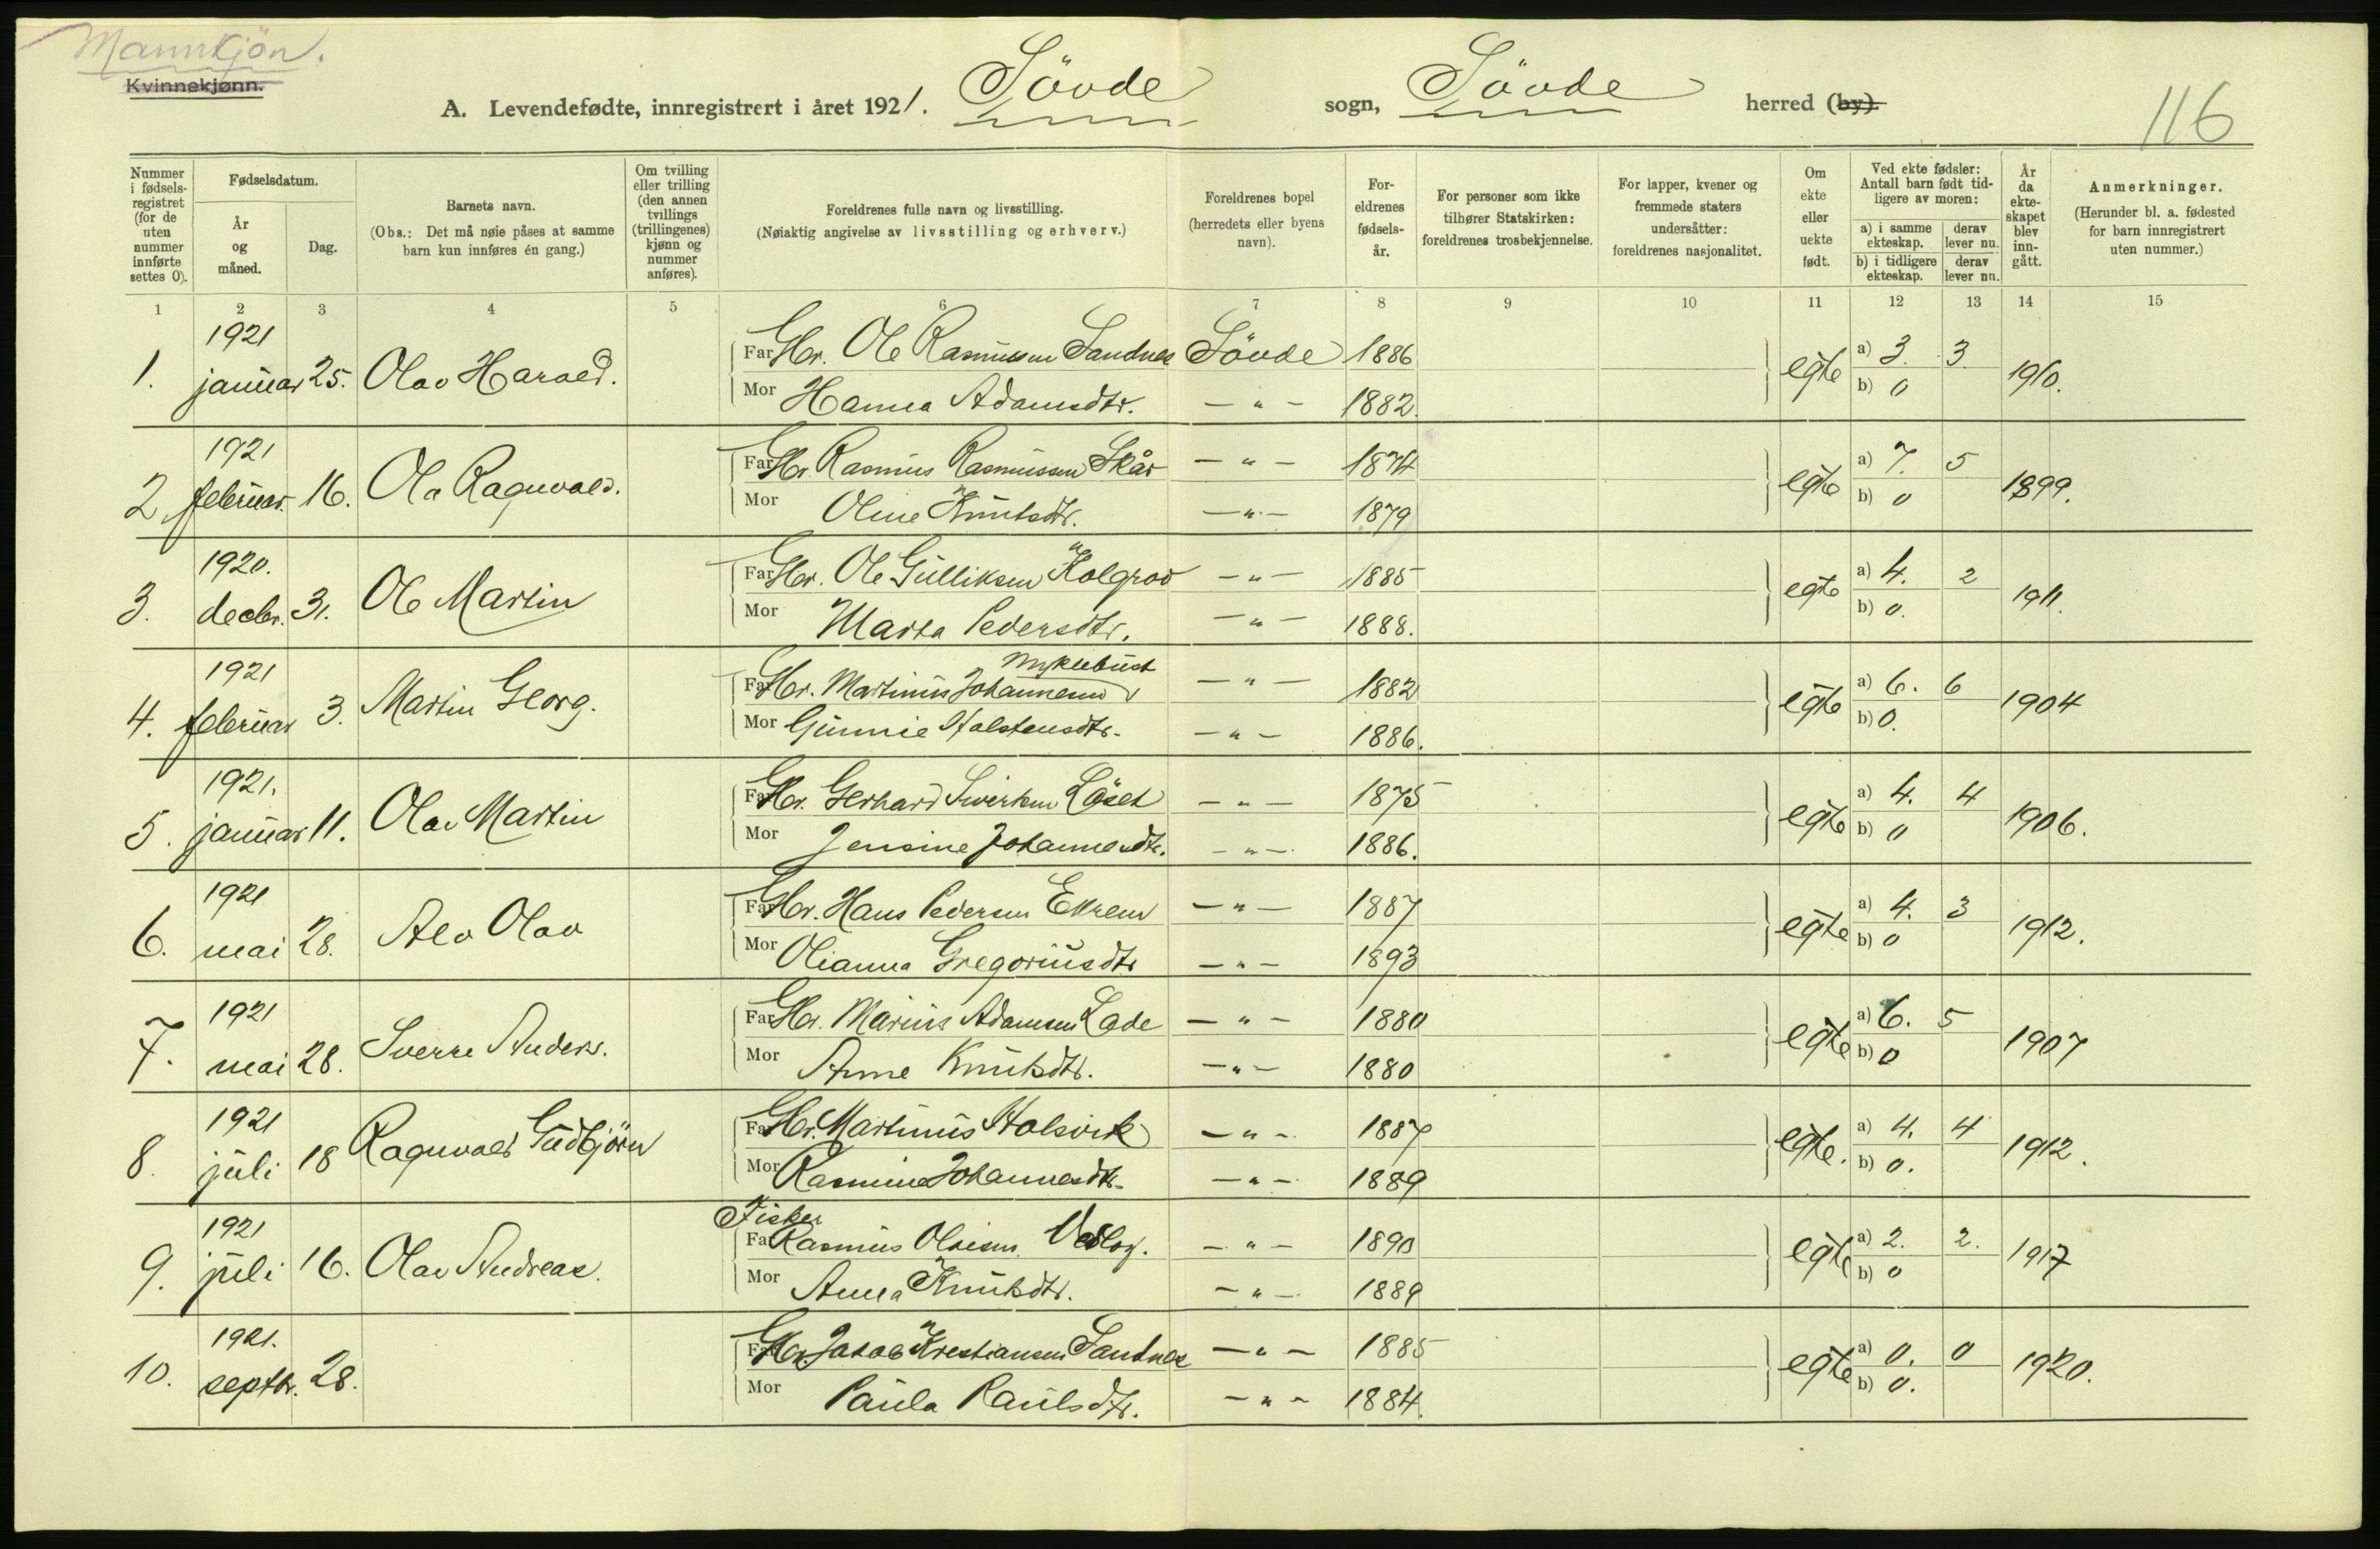 Mannkjön.
Kvinnekjønn.
A. Levendefødte, innregistrert i året 1921. Sövde sogn, Sövde herred (by).
116
Nummer i fødselsregistret (for de uten nummer innførte settes 0).
Fødselsdatum.
År og måned.
Dag.
Barnets navn.
(Obs.: Det må nøie påses at samme barn kun innføres én gang.)
Om tvilling eller trilling (den annen tvillings (trillingenes) kjønn og nummer anføres).
Foreldrenes fulle navn og livsstilling.
(Nøiaktig angivelse av livsstilling og erhverv.)
Foreldrenes bopel (herredets eller byens navn).
Foreldrenes fødselsår.
For personer som ikke tilhører Statskirken: foreldrenes trosbekjennelse.
For lapper, kvener og fremmede staters undersåtter: foreldrenes nasjonalitet.
Om ekte eller uekte født.
Ved ekte fødsler: Antall barn født tidligere av moren:
a) i samme ekteskap. derav lever nu.
b) i tidligere ekteskap. derav lever nu.
År da ekteskapet blev inngått.
Anmerkninger.
(Herunder bl. a. fødested for barn innregistrert uten nummer.)
1 2 3 4 5 6 7 8 9 10 11 12 13 14 15
1. 1921 januar 25. Olav Harald. Far Gbr. Ole Rasmussen Sandnes Sövde 1886 egte a) 3. 3. b) 0 1910.
Mor Hanna Adamsdtr. — " — 1882.
2. 1921 februar. 16. Ola Ragnvald. Far Gbr Rasmus Rasmussen Skår — " — 1874 egte a) 7. 5 b) 0 1899.
Mor Oline Knutsdtr. — " — 1879
3. 1920. decbr. 31. Ole Martin Far Gbr. Ole Gulliksen Kolgrov — " — 1885 egte a) 4. 2 b) 0. 1911.
Mor Marta Pedersdtr. — " — 1888.
4. 1921 februar 3. Martin Georg. Far Gbr. Martinus Johannesen Myklebust — " — 1882 egte a) 6. 6 b) 0. 1904
Mor Gunnie Halstensdtr. — " — 1886.
5. 1921. januar 11. Olav Martin Far Gbr. Gerhard Sivertsen Löset — " — 1875 egte a) 4. 4 b) 0 1906.
Mor Jensine Johannesdtr. — " — 1886.
6. 1921 mai 28. Alv Olav Far Gbr. Hans Pedersen Ekrem — " — 1887 egte a) 4. 3 b) 0 1912.
Mor Olianna Gregoriusdtr — " — 1893
7. 1921 mai 28. Sverre Anders. Far Gbr. Marius Adamsen Lade — " — 1880 egte a) 6. 5 b) 0 1907
Mor Anne Knutsdtr. — " — 1880
8. 1921 juli 18 Ragnvald Gudbjörn Far Gbr. Martinus Holsvik — " — 1887 egte. a) 4. 4 b) 0. 1912.
Mor Rasmine Johannesdtr. — " — 1889
9. 1921 juli 16. Olav Andreas. Fisker Far Rasmus Olsen — " — 1890 egte a) 2. 2. b) 0 1917
Mor Anna Knutsdtr. — " — 1889
10. 1921. septbr. 28. Far Gbr. Jakob Krestiansen Sandnes — " — 1885 egte a) 0. 0 b) 0. 1920.
Mor Paula Paulsdtr. — " — 1884.